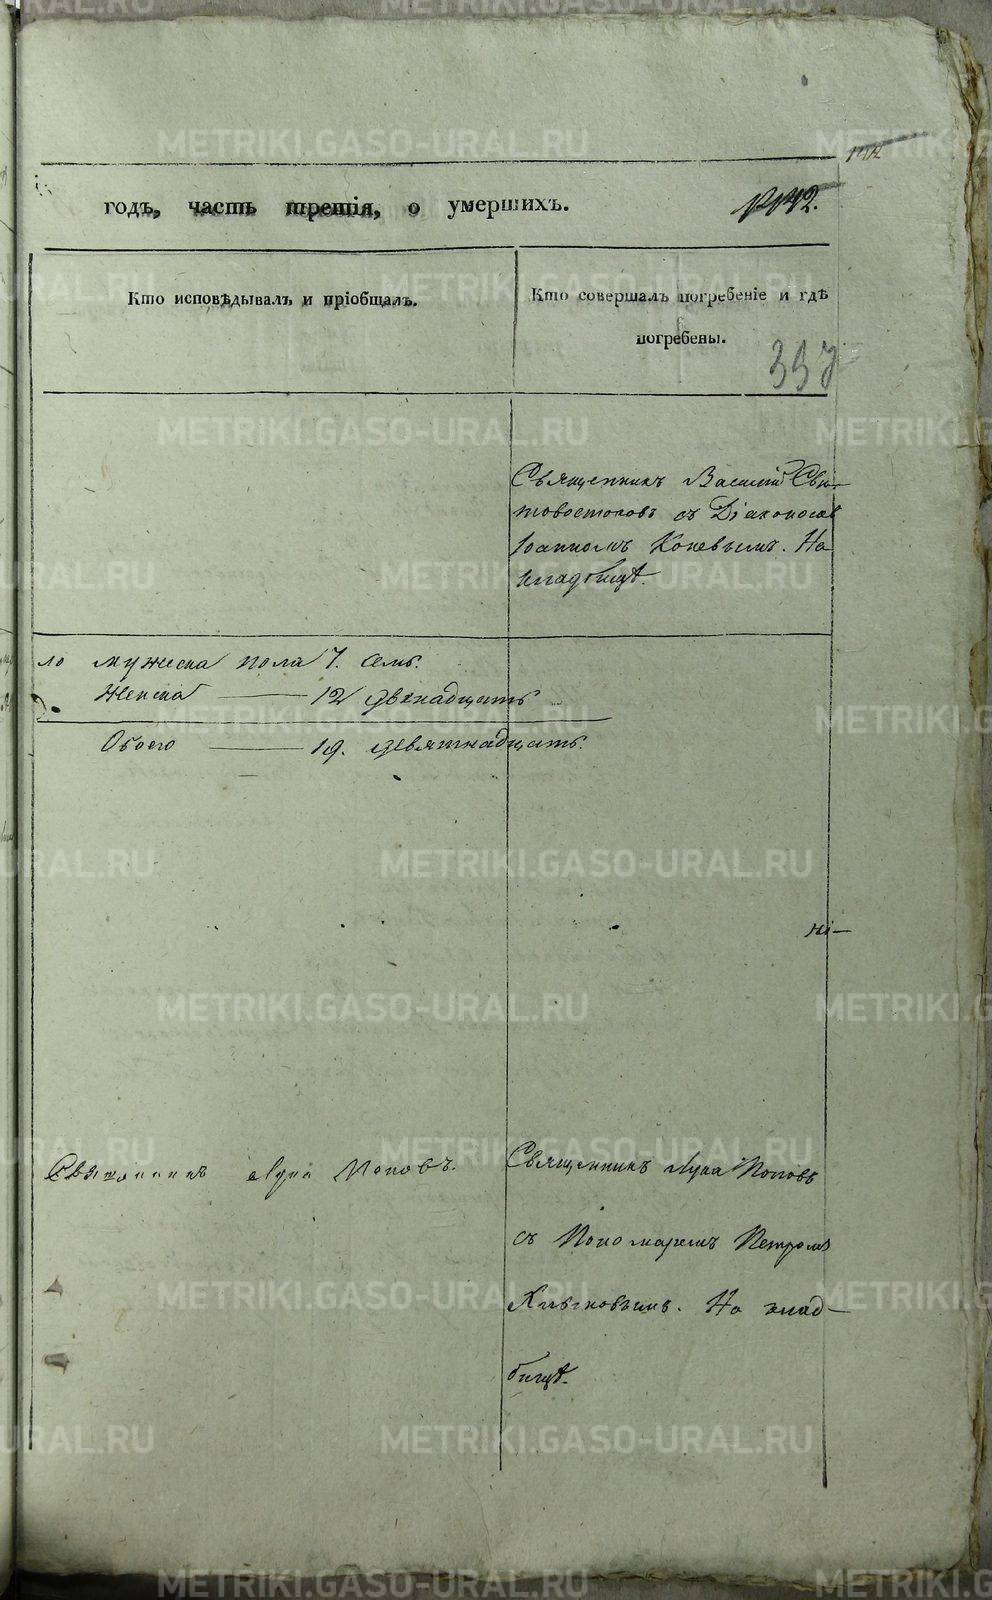 годъ, часть третія, о умершихъ.
Кто исповѣдывалъ и пріобщалъ.
Кто совершалъ погребеніе и гдѣ
погребены.
337
Священникъ Василій Свѣ-
товостоковъ съ Діакономъ
Іоанномъ Коневымъ. На
кладбищѣ.
ло мужеска пола 7. семь.
Женска — 12 двенадцать
Обоего — 19. девятнадцать.
ні-
Священникъ Лука Поповъ.
Священникъ Лука Поповъ
съ Пономаремъ Петромъ
На клад-
бищѣ.
METRIKI.GASO-URAL.RU